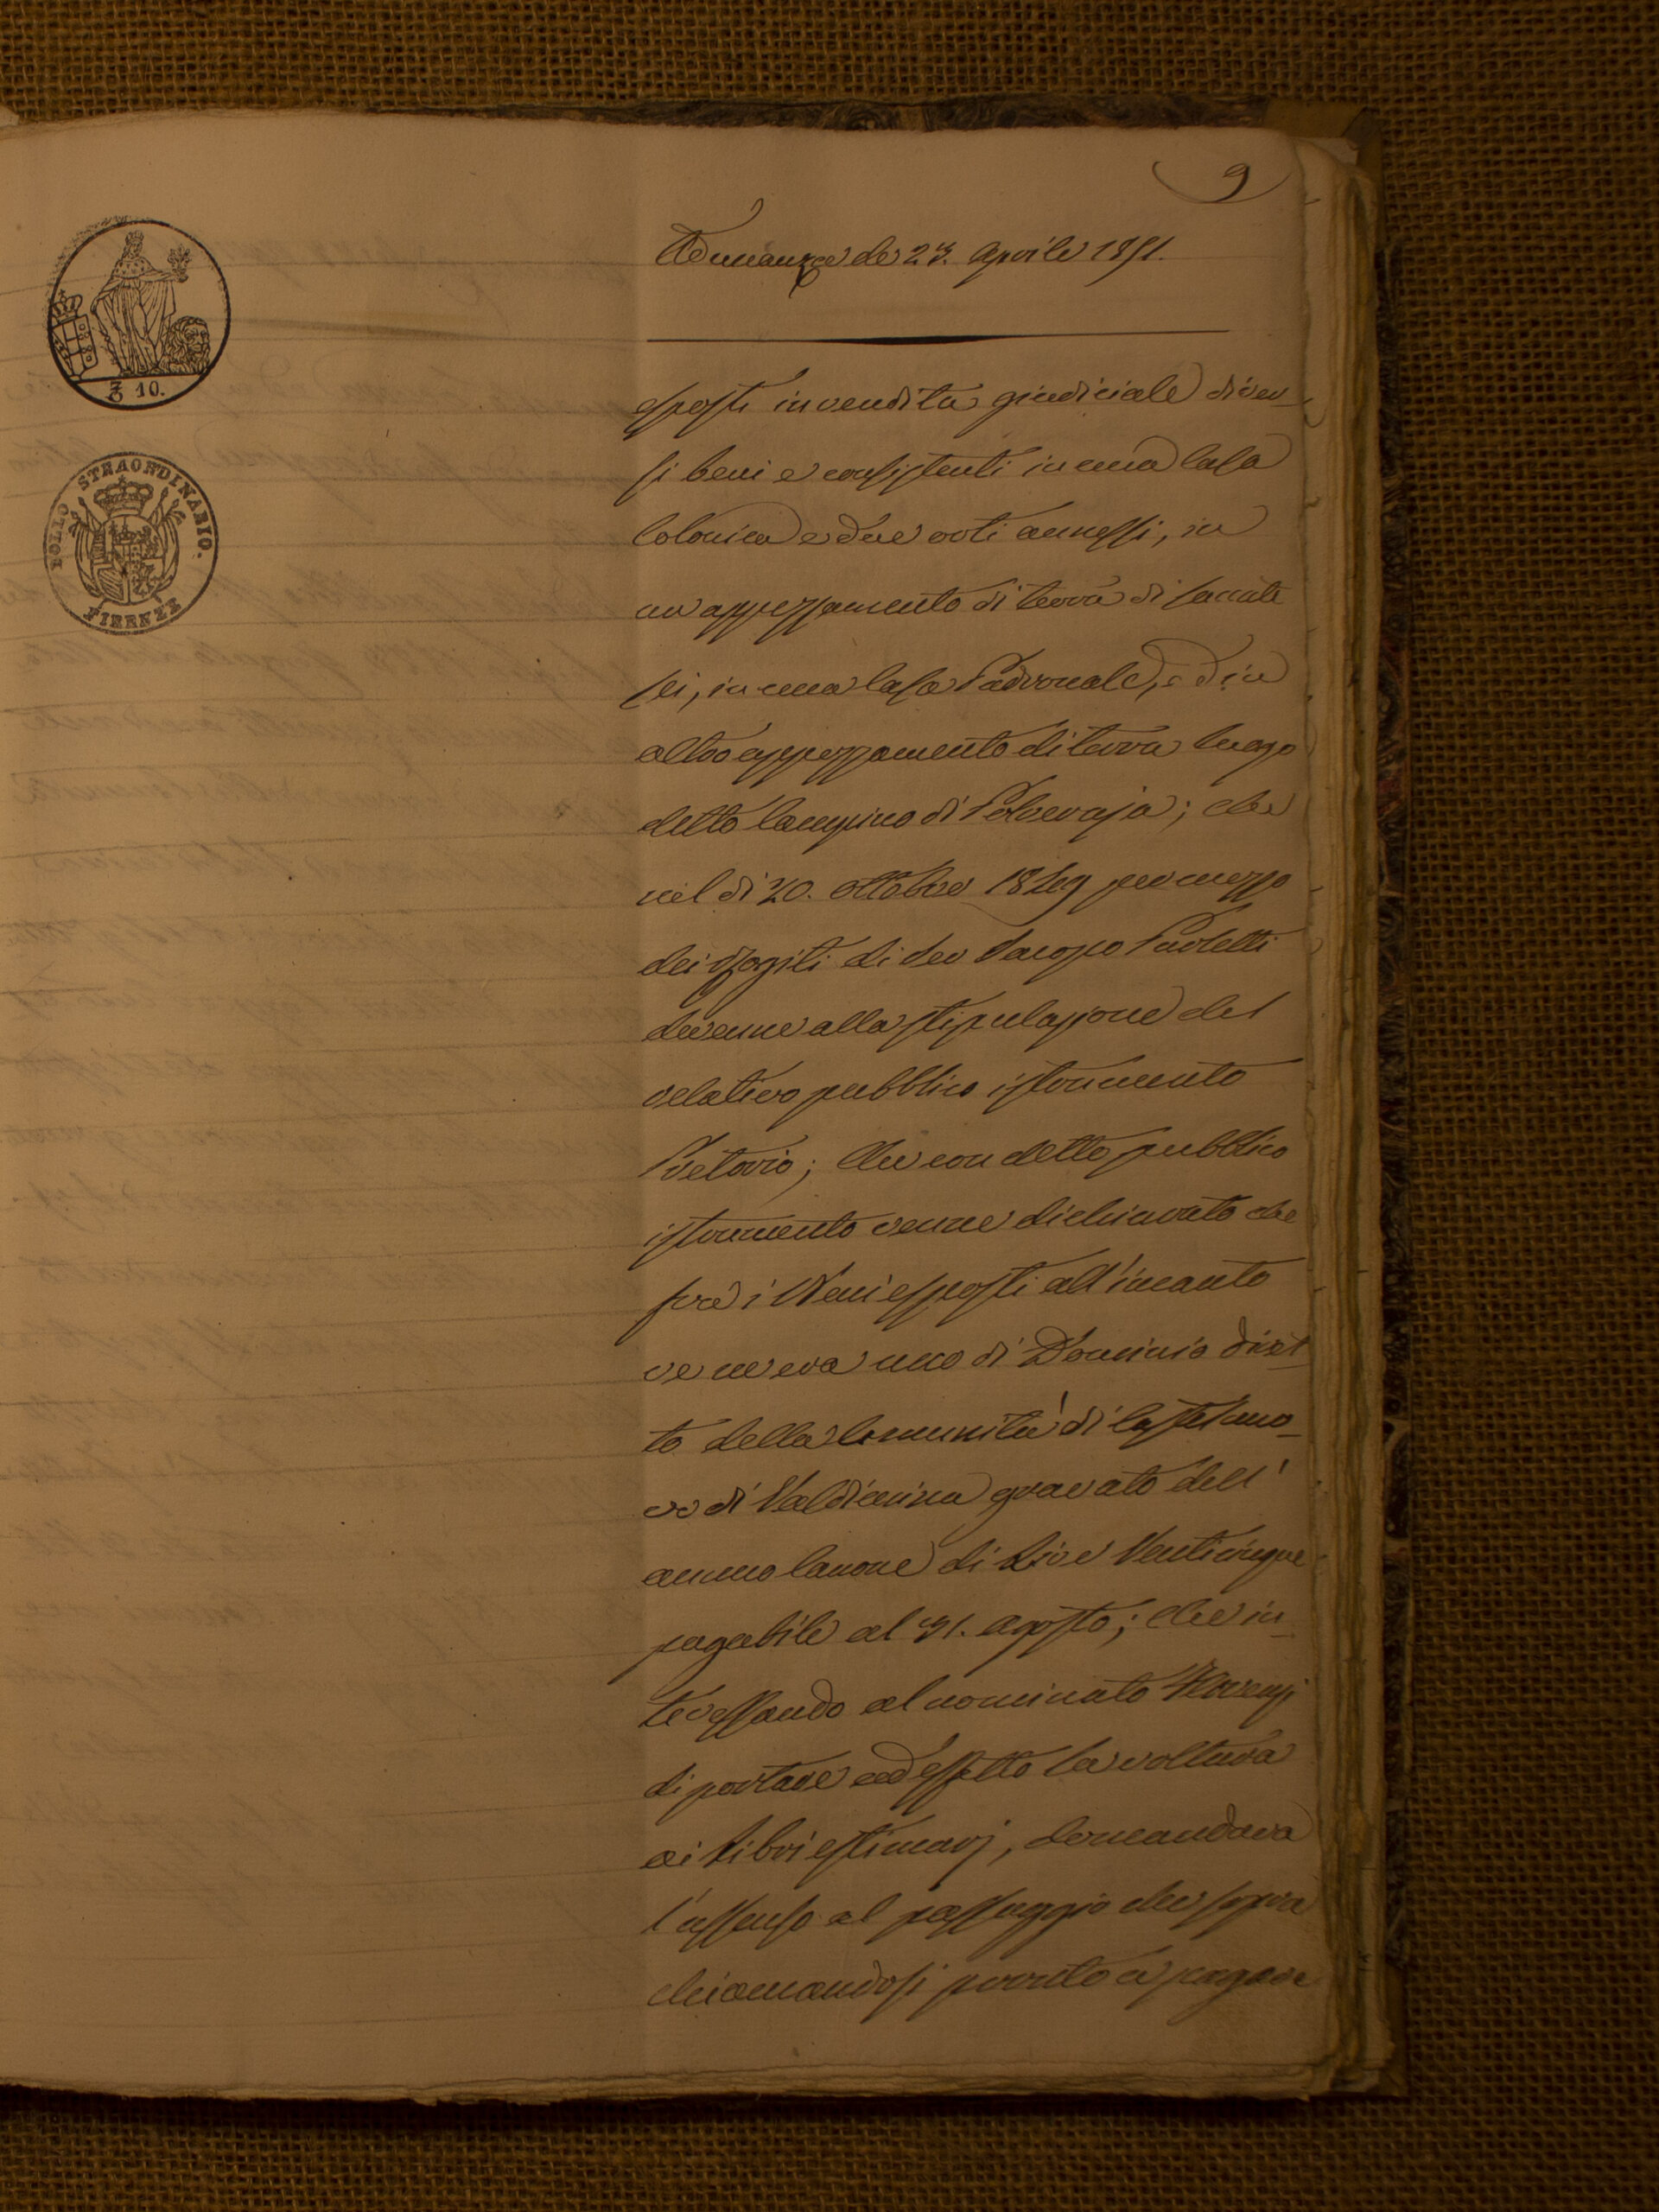 9
Adunanza de 23. Aprile 1851.
10.
BOLLO STRAORDINARIO.
FIRENZE
esposti in vendita giudiciale diver-
si beni e consistenti in una Casa
Colonica e due orti annessi, in
un appezzamento di terra di saccate
sei, in una Casa Padronale, ed in
altro appezzamento di terra luogo
detto Campino di Polveraja; che
nel dì 30. Ottobre 1849 per mezzo
dei rogiti di Ser Jacopo Paoletti
devenne alla stipulazione del
relativo pubblico istrumento
Pretorio; Che con detto pubblico
istrumento venne dichiarato che
fra i Beni esposti all'incanto
ve ne era uno di Dominio diret-
to della Comunità di Castelnuo-
vo di Valdicecina gravato dell'
annuo Canone di Lire Venticinque
pagabile al 31. Agosto; Che in-
teressando al nominato
di portare ad effetto la voltura
ai Libri estimarj, domandava
l'assenso al passaggio che sopra
chiamandosi pronto a pagare